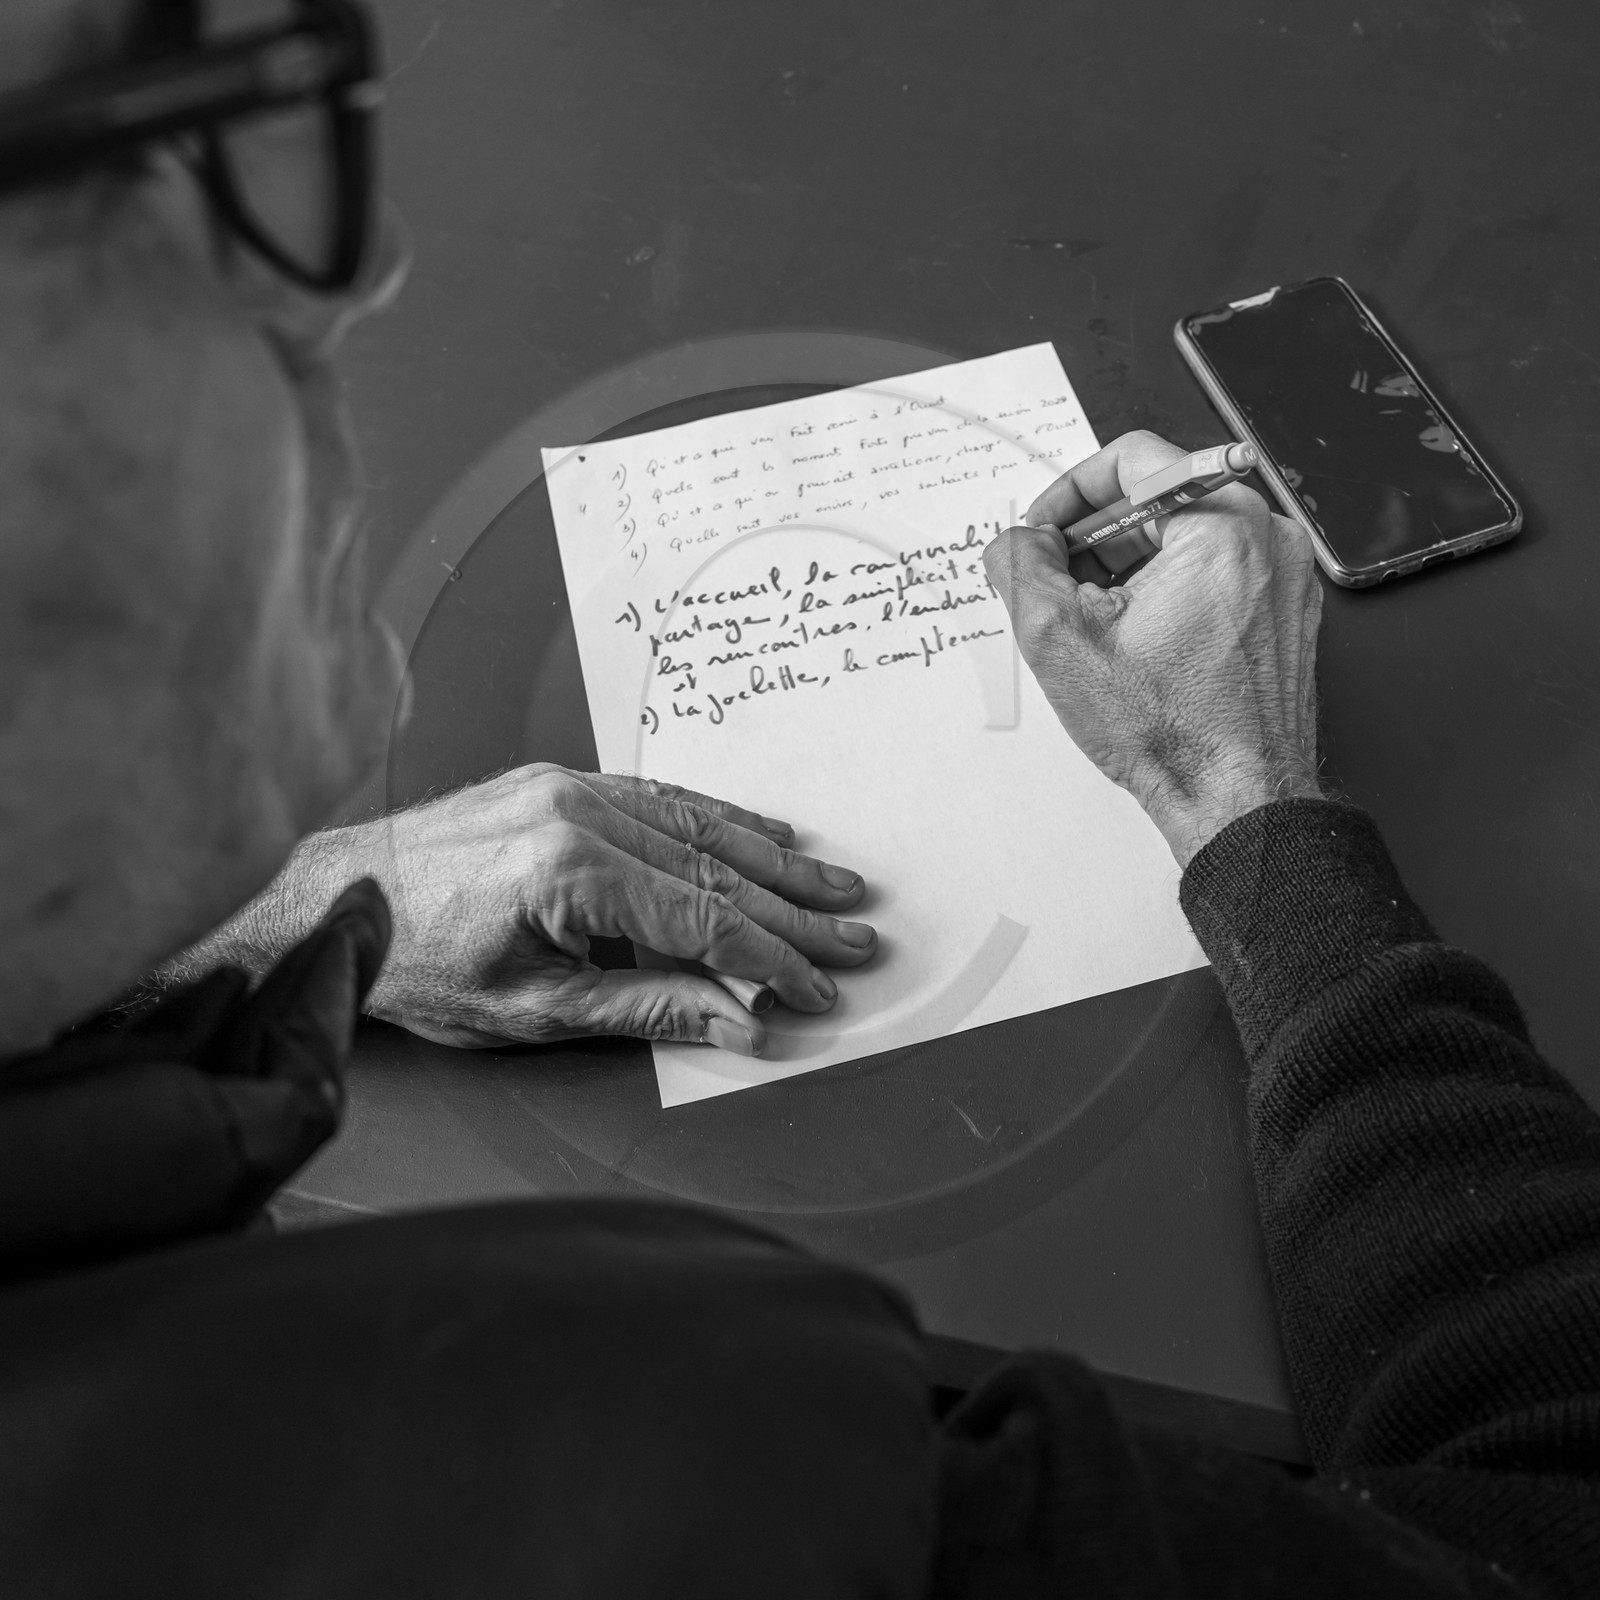 1) Qu'est ce qui vous fait venir à l'Ouest
4 2) Quels sont les moments forts pour vous de la saison 2024
3) Qu'est ce qu'on pourrait améliorer, changer à l'Ouest
4) Quelles sont vos envies, vos souhaits pour 2025
1) L'accueil, la convivialit
partage, la simplicité
les rencontres, l'endroit
2) La joelette, le compteur
STABILO OHPen
M